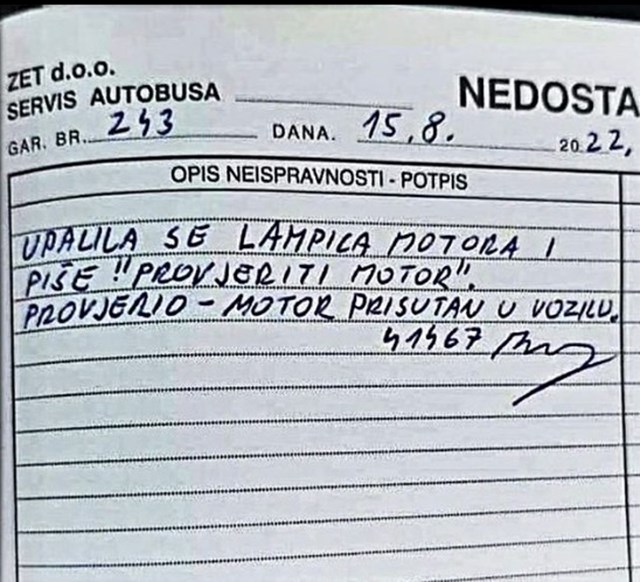 ZET d.o.o.
SERVIS AUTOBUSA
NEDOSTA
GAR. BR. 243 DANA. 15.8. 2022,
OPIS NEISPRAVNOSTI - POTPIS
UPALILA SE LAMPICA MOTORA I
PIŠE "PROVJERITI MOTOR".
PROVJERIO - MOTOR PRISUTAN U VOZILU.
41467